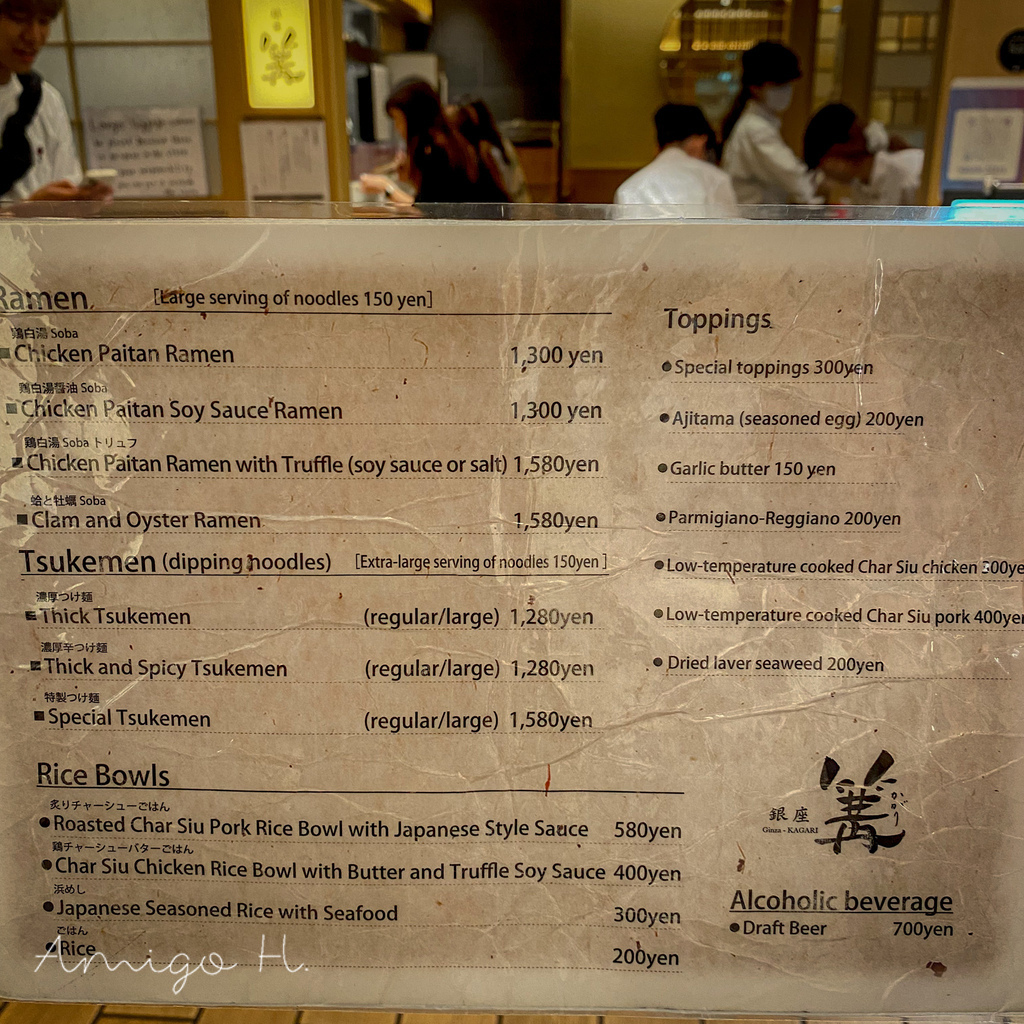 Ramen [Large serving of noodles 150 yen]
鶏白湯 Soba
Chicken Paitan Ramen 1,300 yen
鶏白湯醤油 Soba
Chicken Paitan Soy Sauce Ramen 1,300 yen
鶏白湯 Soba トリュフ
Chicken Paitan Ramen with Truffle (soy sauce or salt) 1,580yen
蛤と牡蠣 Soba
Clam and Oyster Ramen 1,580yen
Tsukemen (dipping noodles) [Extra-large serving of noodles 150yen]
濃厚つけ麺
Thick Tsukemen (regular/large) 1,280yen
濃厚辛つけ麺
Thick and Spicy Tsukemen (regular/large) 1,280yen
特製つけ麺
Special Tsukemen (regular/large) 1,580yen
Rice Bowls
炙りチャーシューごはん
Roasted Char Siu Pork Rice Bowl with Japanese Style Sauce 580yen
鶏チャーシューバターごはん
Char Siu Chicken Rice Bowl with Butter and Truffle Soy Sauce 400yen
浜めし
Japanese Seasoned Rice with Seafood 300yen
ごはん
Rice 200yen
Toppings
Special toppings 300yen
Ajitama (seasoned egg) 200yen
Garlic butter 150 yen
Parmigiano-Reggiano 200yen
Low-temperature cooked Char Siu chicken 300ye
Low-temperature cooked Char Siu pork 400yen
Dried laver seaweed 200yen
銀座
Ginza - KAGARI
篝
かがり
Alcoholic beverage
Draft Beer 700yen
Amigo H.